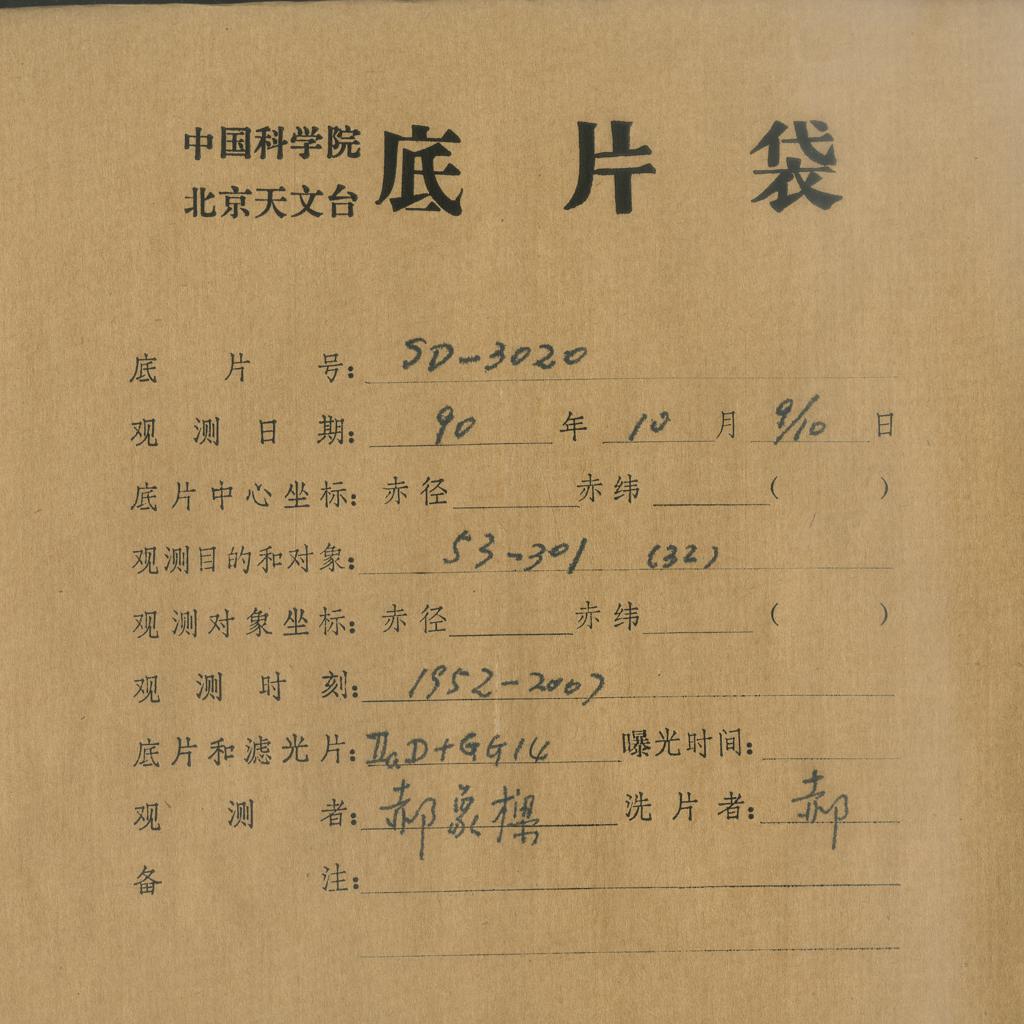 中国科学院
北京天文台 底片袋
底片号: SD-3020
观测日期: 90 年 10 月 9/10 日
底片中心坐标: 赤径 赤纬 ( )
观测目的和对象: 53-301 (32)
观测对象坐标: 赤径 赤纬 ( )
观测时刻: 1952-2007
底片和滤光片: IIaD+GG14 曝光时间:
观测者: 郝象樑 洗片者: 郝
备注: